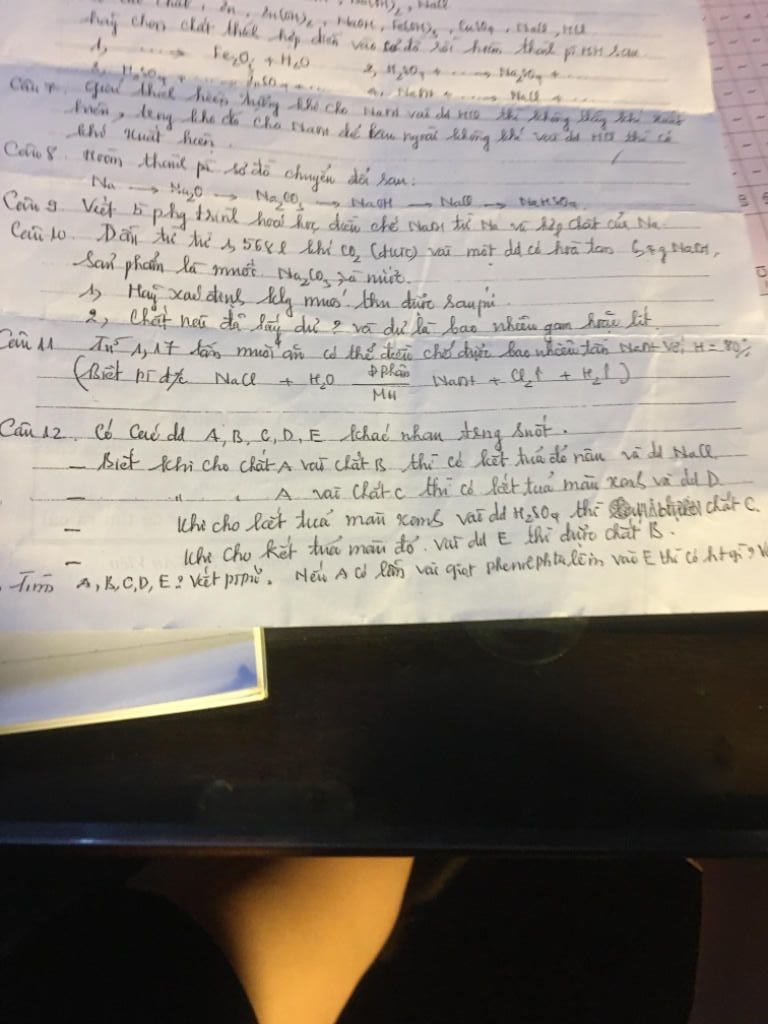 Zn, Zn(OH)₂, NaOH, Fe(OH)₃, CuSO₄, NaCl, HCl
Hãy chọn chất thích hợp điền vào sơ đồ rồi hoàn thành pt HH sau
1, ........ → Fe₂O₃ + H₂O 2, H₂SO₄ + ...... → Na₂SO₄ + ...
3, H₂SO₄ + ...... → ZnSO₄ + ... 4, NaOH + ...... → NaCl + ...
Câu 7. Giải thích hiện tượng khi cho NaOH vào dd HCl thì không thấy khí xuất
hiện, trong khi đó cho NaOH để lâu ngoài không khí vào dd HCl thì có
khí xuất hiện.
Câu 8. Hoàn thành pt sơ đồ chuyển đổi sau:
Na → Na₂O → Na₂CO₃ → NaOH → NaCl → NaHSO₄
Câu 9 Viết 5 phg trình hoá học điều chế NaOH từ Na và hợp chất của Na.
Câu 10. Dẫn từ từ 1,568 l khí CO₂ (đktc) vào một dd có hoà tan NaOH,
sản phẩm là muối Na₂CO₃ và nước.
1, Hãy xác định klg muối thu được sau pứ.
2, Chất nào đã lấy dư? và dư là bao nhiêu gam hoặc lít.
Câu 11 Từ 1,17 tấn muối ăn có thể điều chế được bao nhiêu tấn NaOH với H = 80%
(Biết pt đ/c NaCl + H₂O đphân MN NaOH + Cl₂↑ + H₂↑)
Câu 12. Có các dd A, B, C, D, E khác nhau trong suốt.
– Biết khi cho chất A vào chất B thì có kết tủa đỏ nâu và dd NaCl.
– " " A vào chất C thì có kết tủa màu xanh và dd D.
– Khi cho kết tủa màu xanh vào dd H₂SO₄ thì chất C.
– Khi cho kết tủa màu đỏ vào dd E thì được chất B.
Tìm A, B, C, D, E? Viết ptpứ. Nếu A có lẫn vài giọt phenolphtalein vào E thì có ht gì?